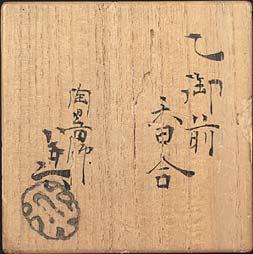 乙御前
香合
陶器師